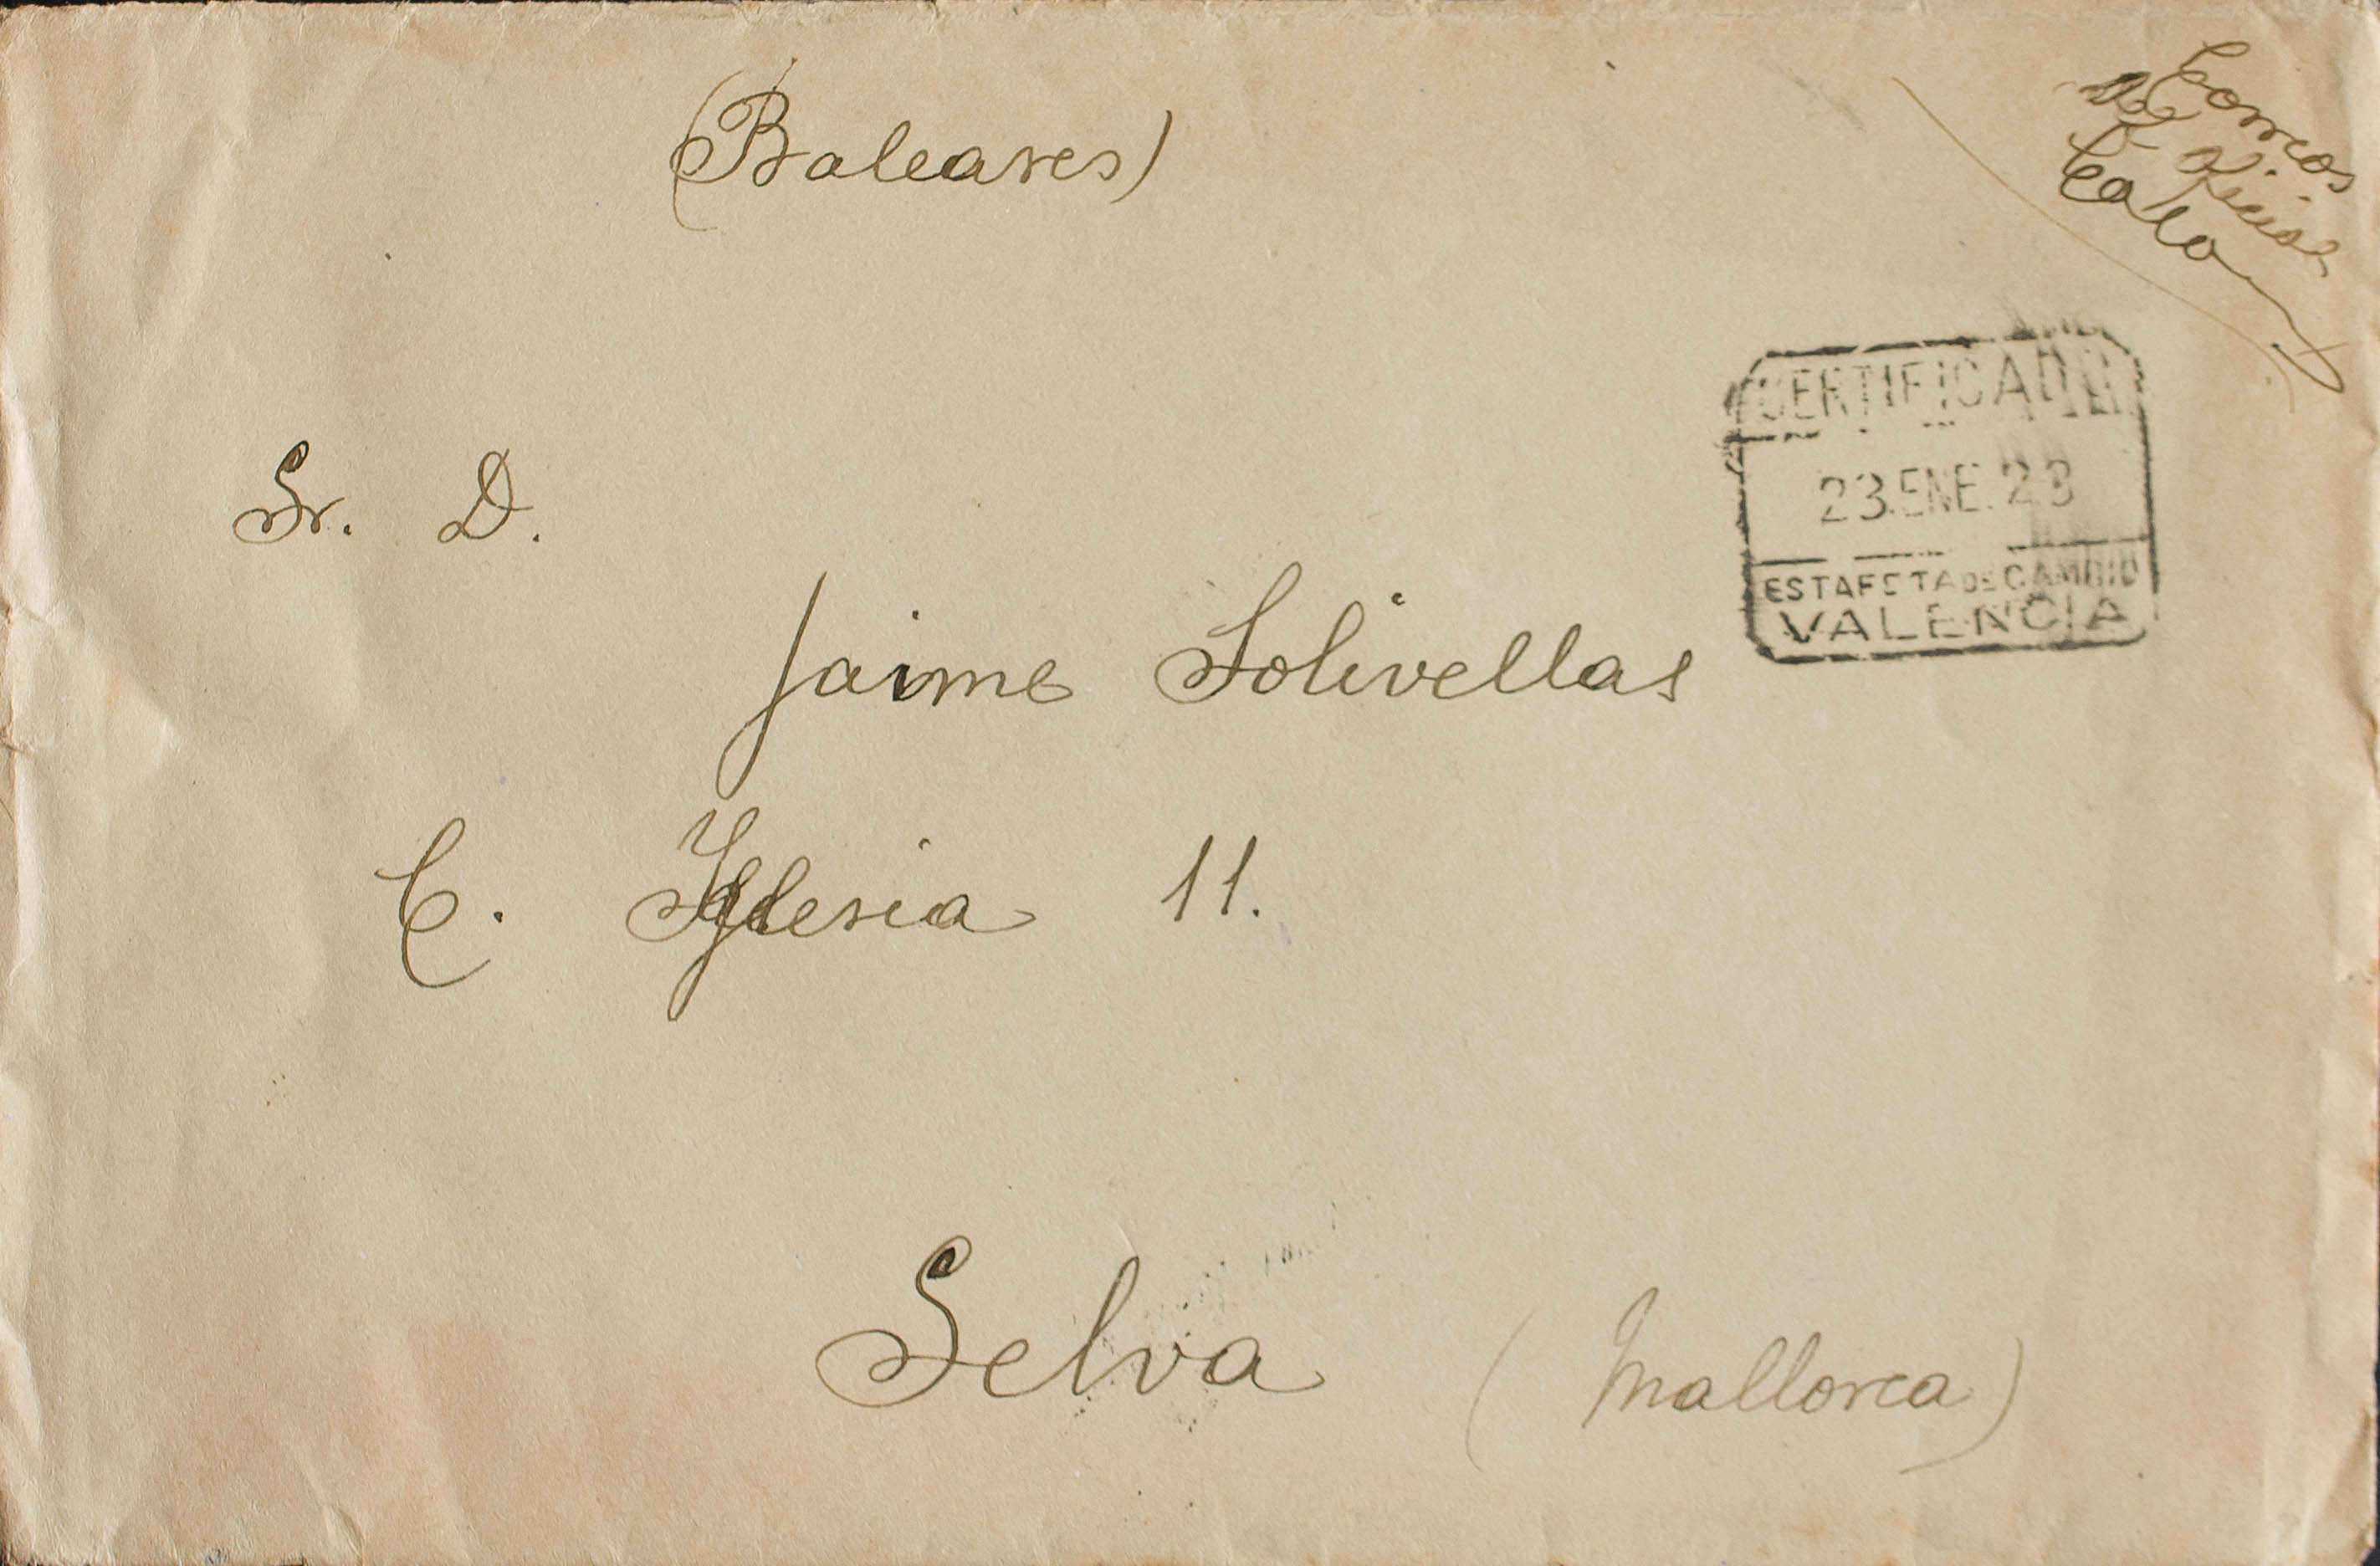 (Baleares)
Correos
De Oficio
CERTIFICADO
23.ENE.23
ESTAFETA DE CAMBIO
VALENCIA
Sr. D.
Jaime Solivellas
C. Yglesia 11.
Selva (Mallorca)